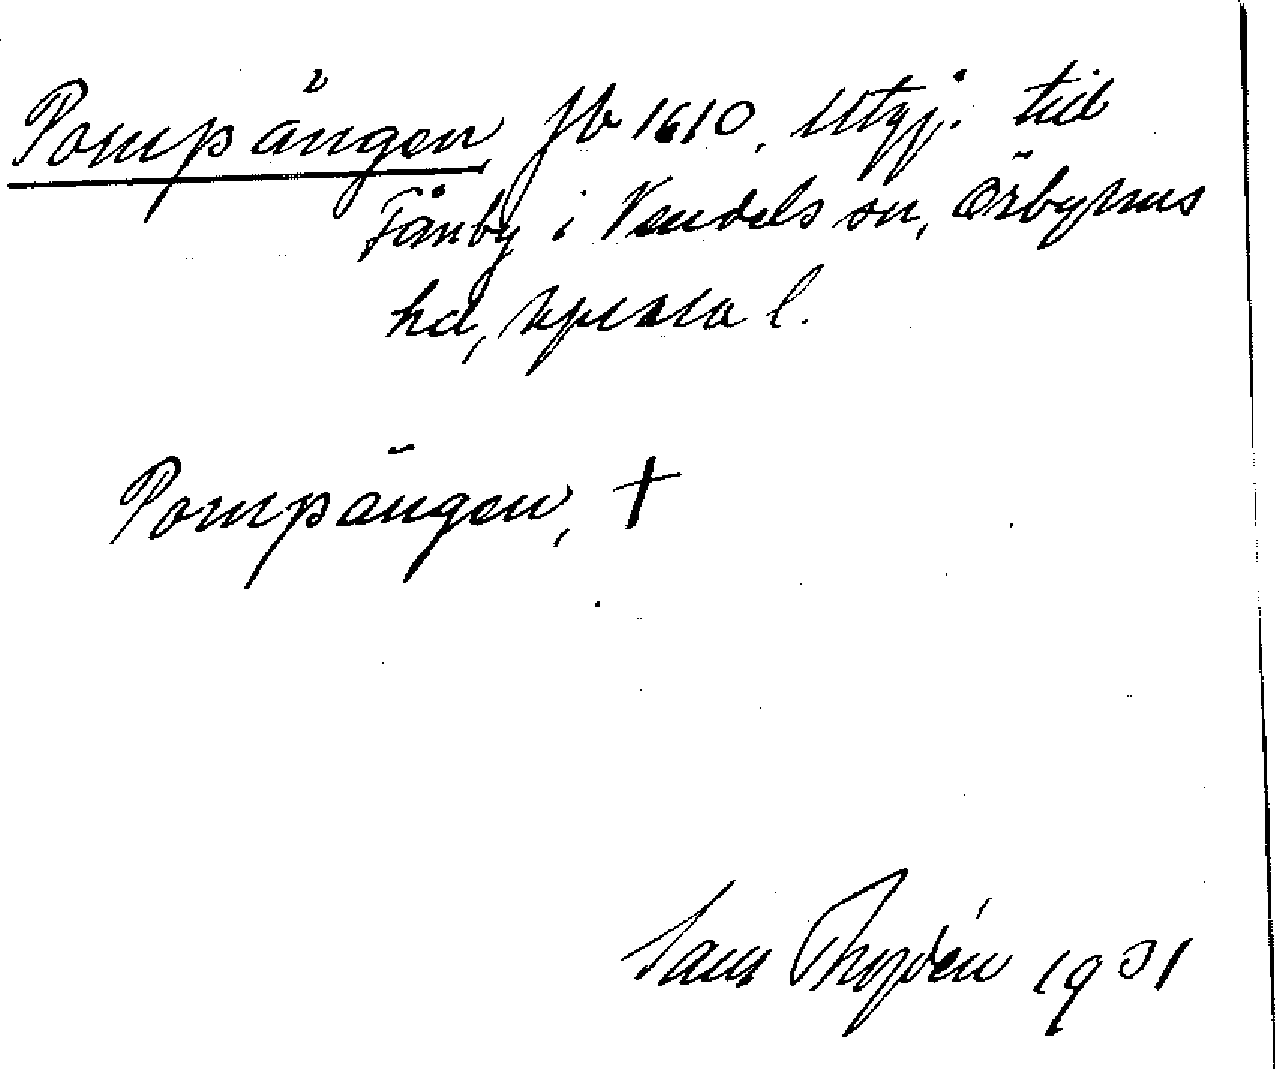 Pompängen Jb 1610. Utgj. till
Fånby i Vendels sn, Örbyhus
hd, Upsala l.
Pompängen, †
Sam 19